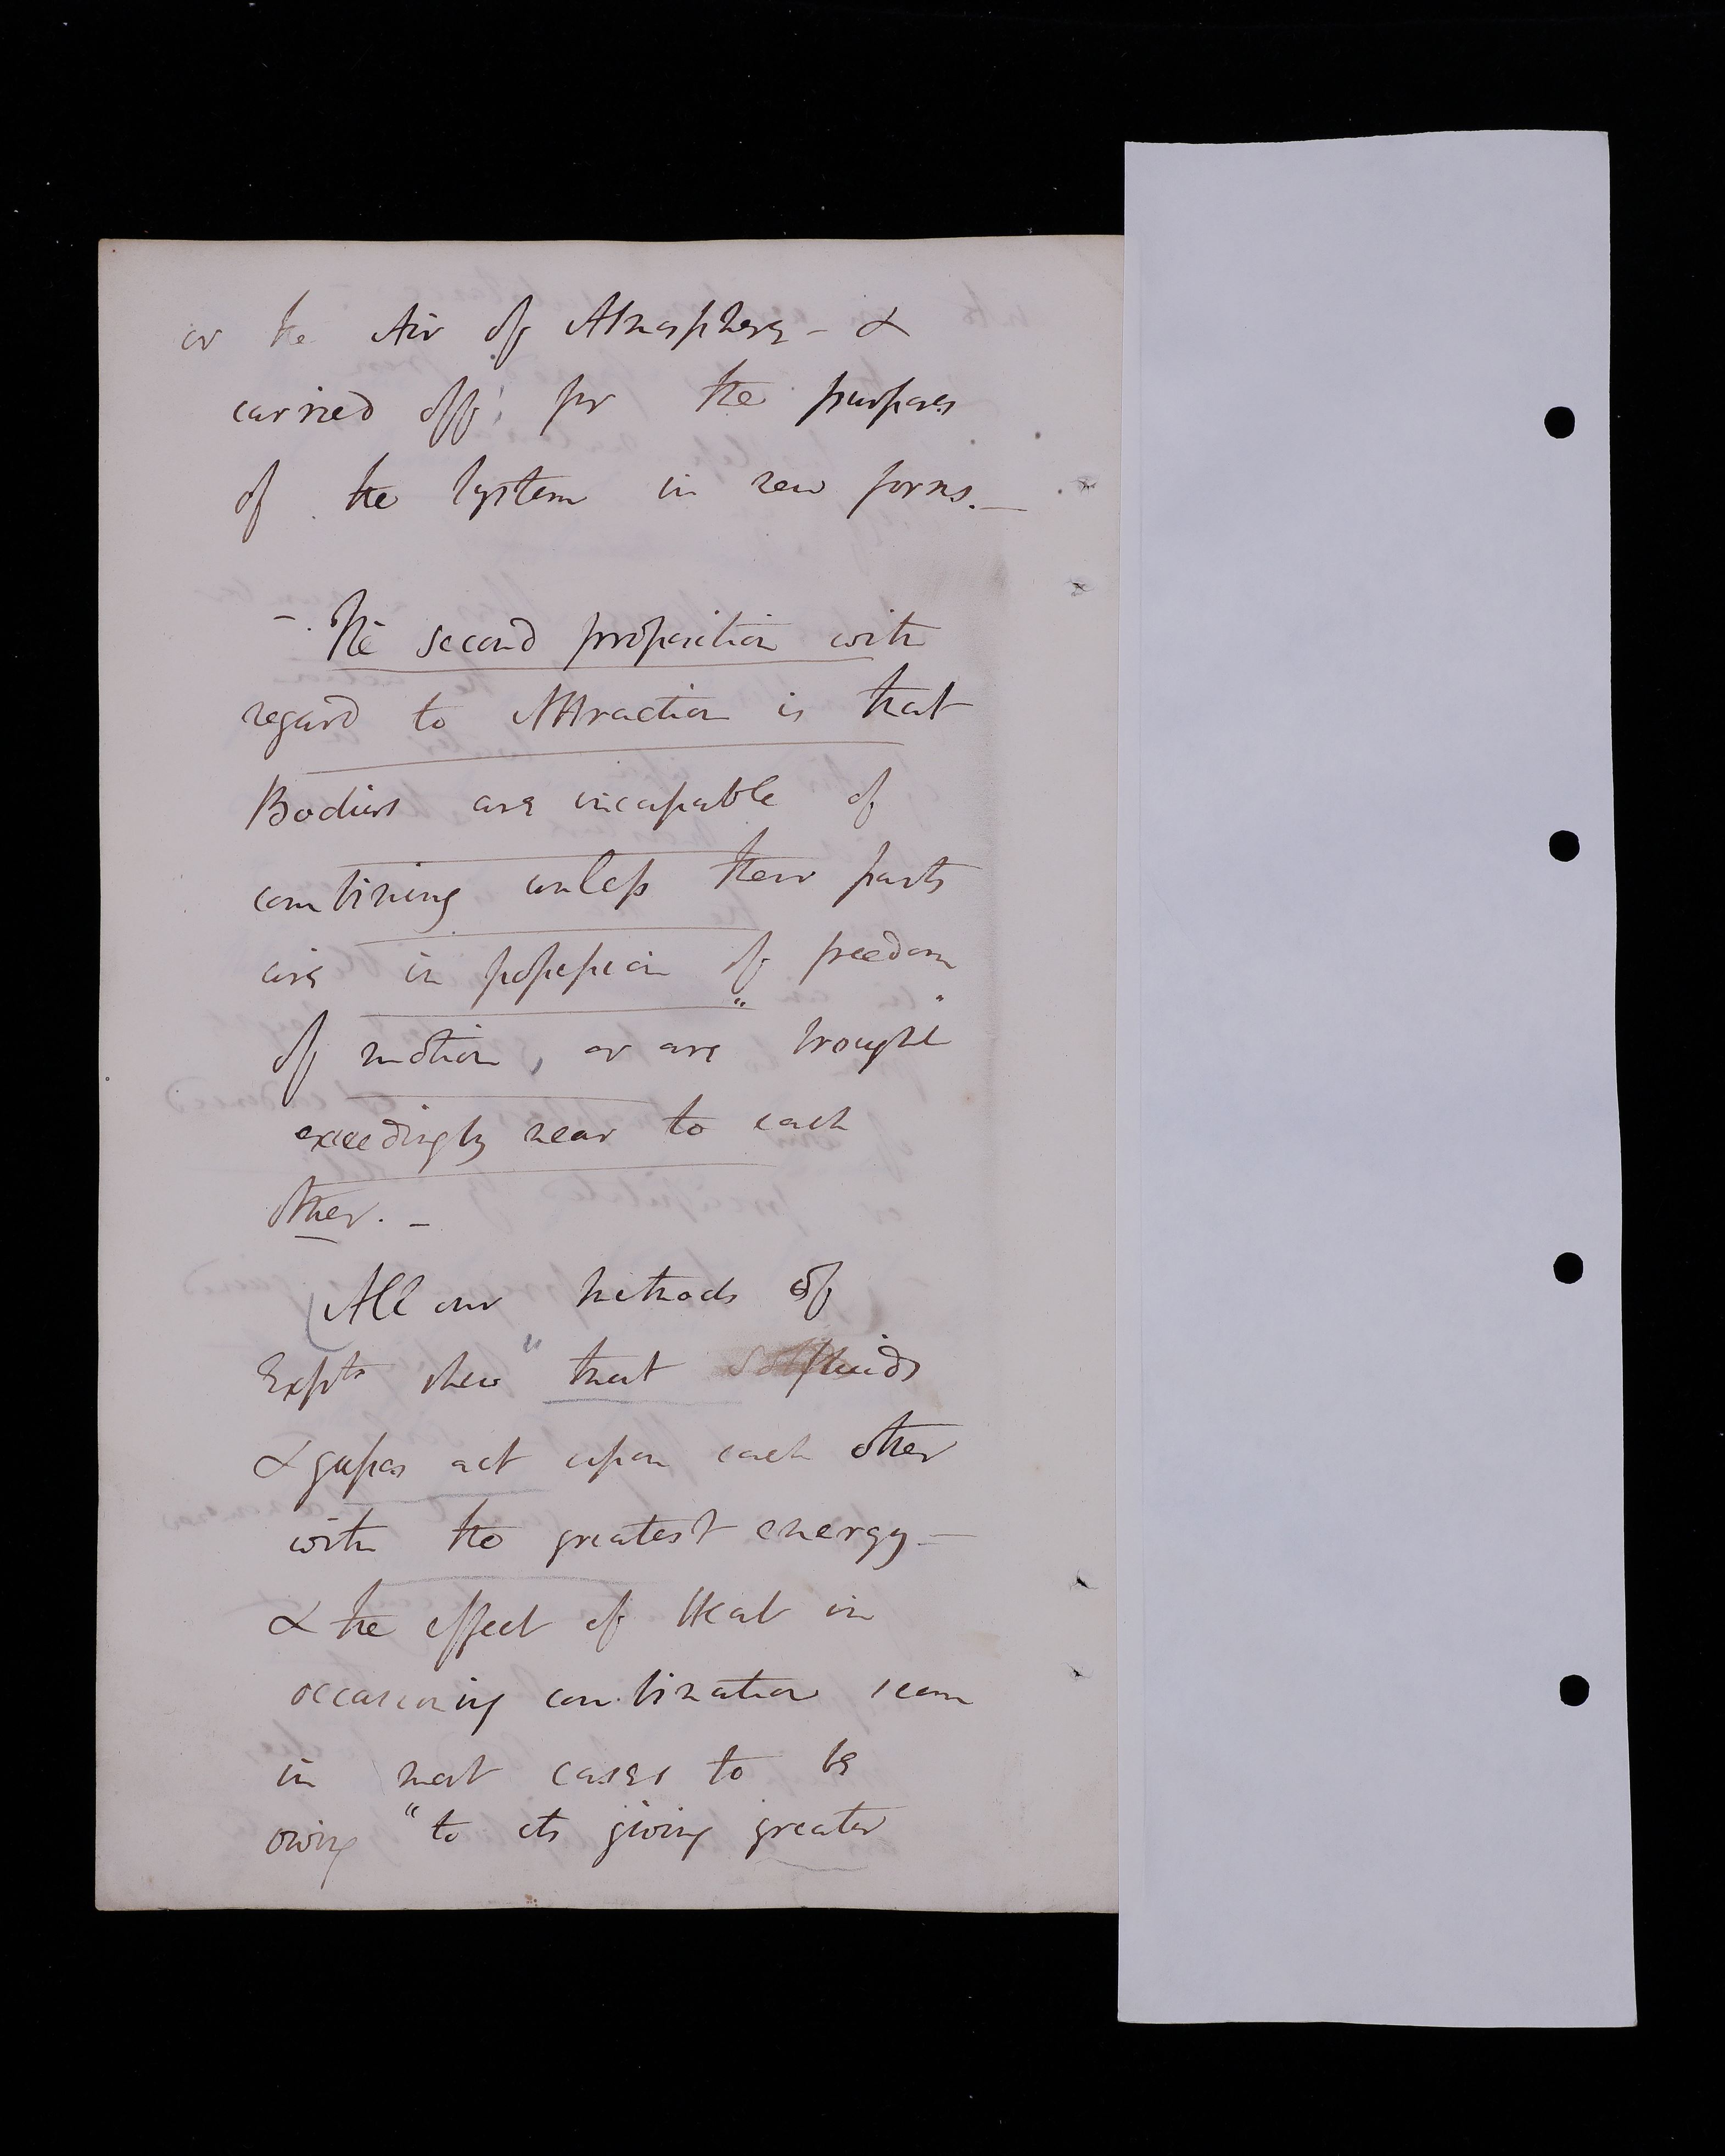 or the Air of Atmosphere - &
carried off; for the purposes
of the System in new forms. —
- . The second proposition with
regard to Attraction is that
Bodies are incapable of
combining unless their parts
are in possession of "freedom"
of motion, or are brought
exceedingly near to each
other. -
(All our methods of
Expts shew " that fluids
& gasses act upon each other
with the greatest energy —
& the effect of Heat in
occasioning combination seem
in most cases to be
owing "to its giving greater